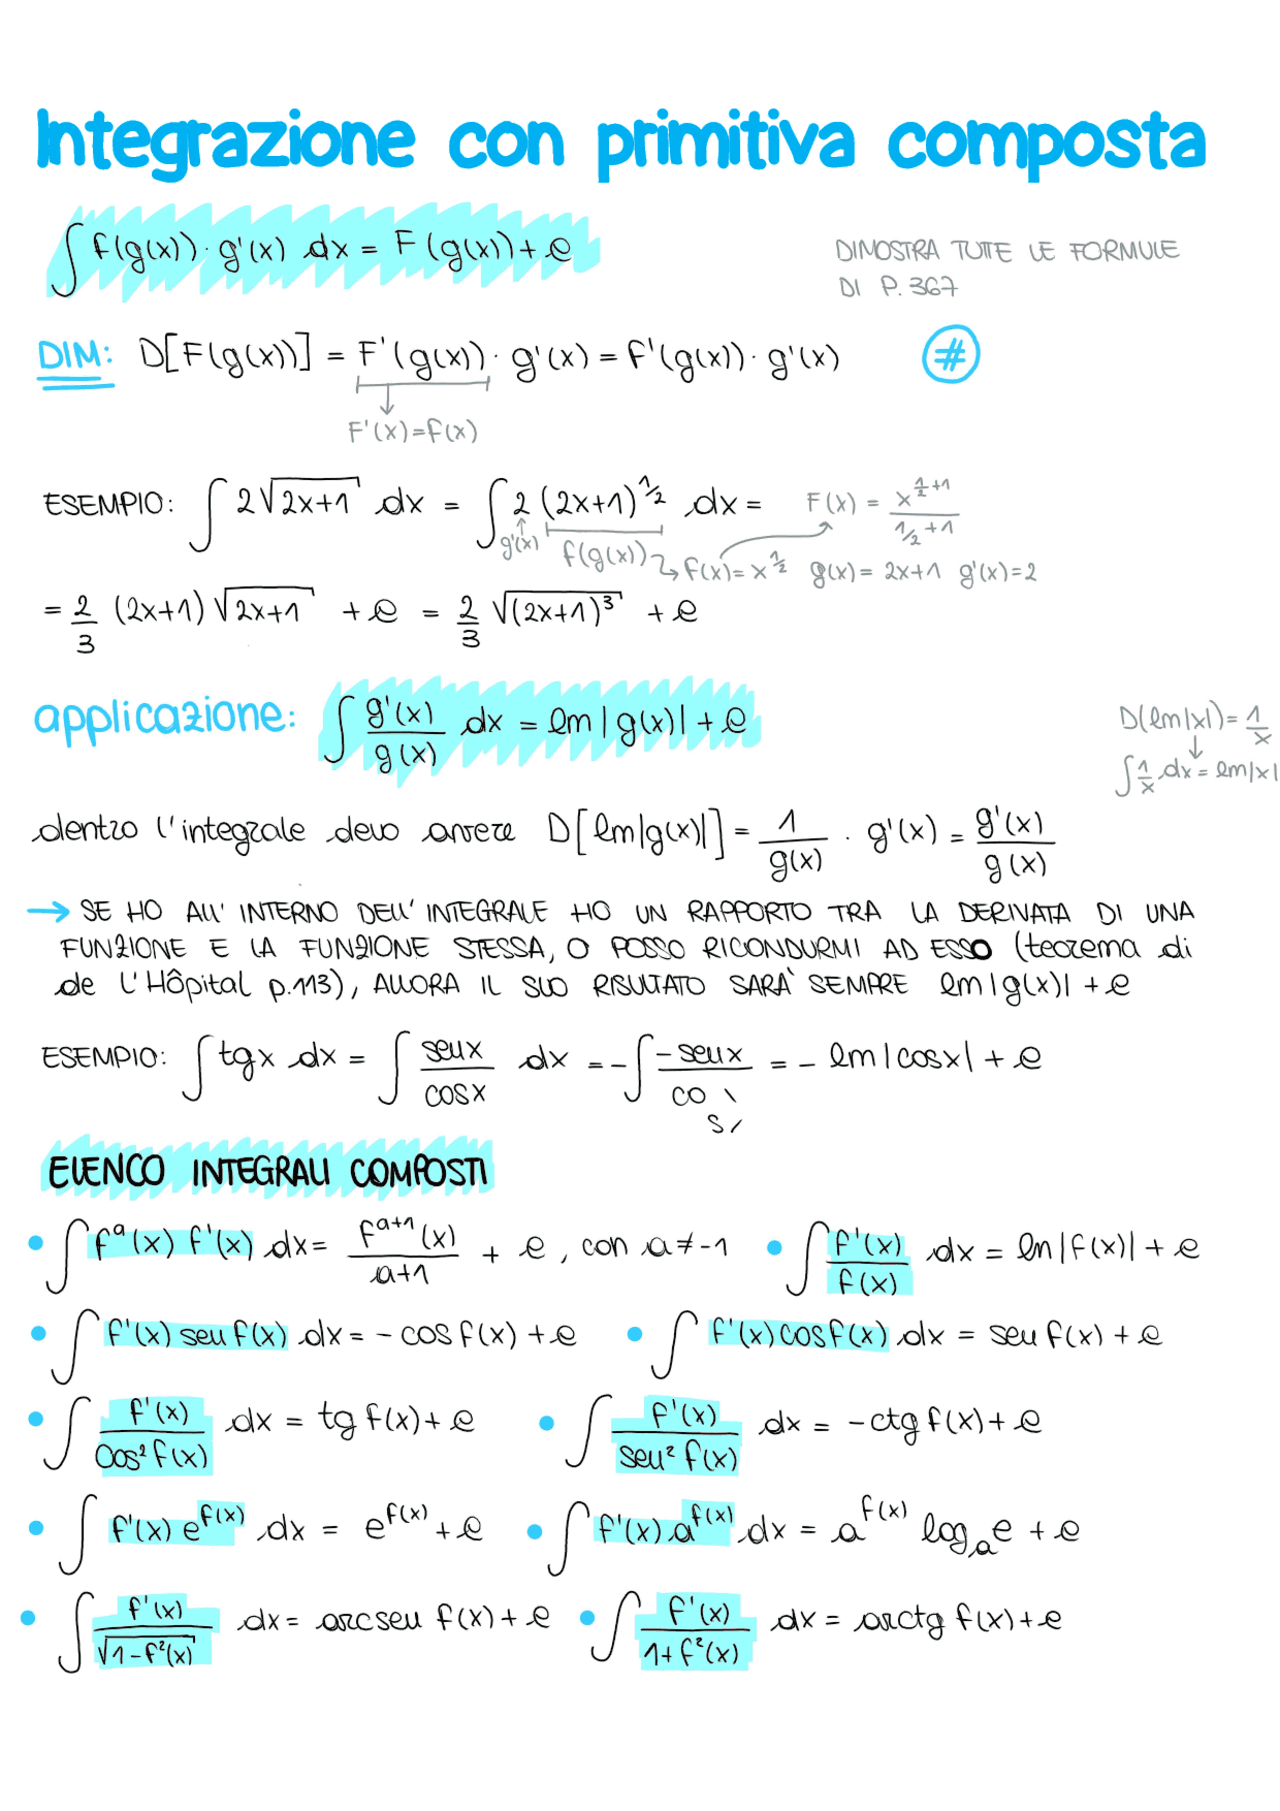 Integrazione con primitiva composta
∫ f(g(x)) · g'(x) dx = F(g(x)) + c
DIMOSTRA TUTTE LE FORMULE
DI P. 367
DIM: D[F(g(x))] = F'(g(x)) · g'(x) = f'(g(x)) · g'(x) #
F'(x)=f(x)
ESEMPIO: ∫ 2√(2x+1) dx = ∫ 2 (2x+1)^½ dx = F(x) = x^(½+1) / (½+1)
g'(x) f(g(x)) f(x)= x^½ g(x)= 2x+1 g'(x)=2
= 2/3 (2x+1) √(2x+1) + c = 2/3 √((2x+1)³) + c
applicazione: ∫ g'(x)/g(x) dx = ln |g(x)| + c
D(ln|x|)= 1/x
∫ 1/x dx = ln|x|
dentro l'integrale devo avere D[ln|g(x)|] = 1/g(x) · g'(x) = g'(x)/g(x)
→ SE HO ALL' INTERNO DELL' INTEGRALE HO UN RAPPORTO TRA LA DERIVATA DI UNA
FUNZIONE E LA FUNZIONE STESSA, O POSSO RICONDURMI AD ESSO (teorema di
de L'Hôpital p.113), ALLORA IL SUO RISULTATO SARÀ SEMPRE ln |g(x)| + c
ESEMPIO: ∫ tgx dx = ∫ senx/cosx dx = -∫ -senx/cos = - ln |cosx| + c
ELENCO INTEGRALI COMPOSTI
• ∫ f^a(x) f'(x) dx = f^(a+1)(x)/(a+1) + c, con a ≠ -1 • ∫ f'(x)/f(x) dx = ln |f(x)| + c
• ∫ f'(x) sen f(x) dx = - cos f(x) + c • ∫ f'(x) cos f(x) dx = sen f(x) + c
• ∫ f'(x)/cos² f(x) dx = tg f(x) + c • ∫ f'(x)/sen² f(x) dx = -ctg f(x) + c
• ∫ f'(x) e^f(x) dx = e^f(x) + c • ∫ f'(x) a^f(x) dx = a^f(x) log_a e + c
• ∫ f'(x)/√(1-f²(x)) dx = arcsen f(x) + c • ∫ f'(x)/(1+f²(x)) dx = arctg f(x) + c